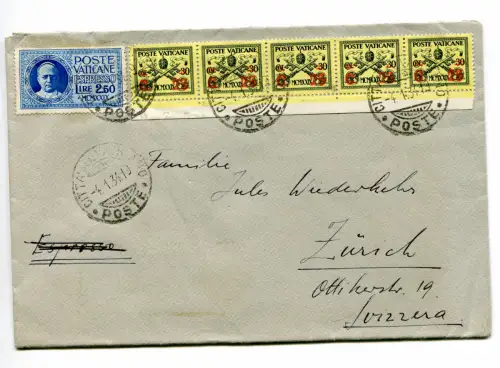 POSTE VATICANE
ESPRESSO
LIRE 2,50
MCMXXIX
POSTE VATICANE POSTE VATICANE POSTE VATICANE POSTE VATICANE POSTE VATICANE
30 30 30 30 30
MCMXXIX MCMXXIX MCMXXIX MCMXXIX
POSTE POSTE POSTE
4.1.34.19
POSTE
Familie
Jules Wiederkehr
Zürich
Espresso
Ottikerstr. 19
Svizzera